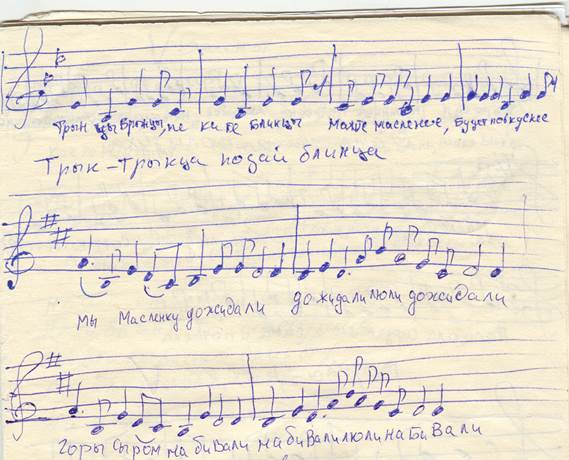 Трын цы Брынцы, пе ки те Блинцы Мажте масленее, Будет повкуснее
Трын-Трынца подай блинца
Мы Масленку дожидали дожидали люли дожидали
Горы сыром набивали набивали люли набивали